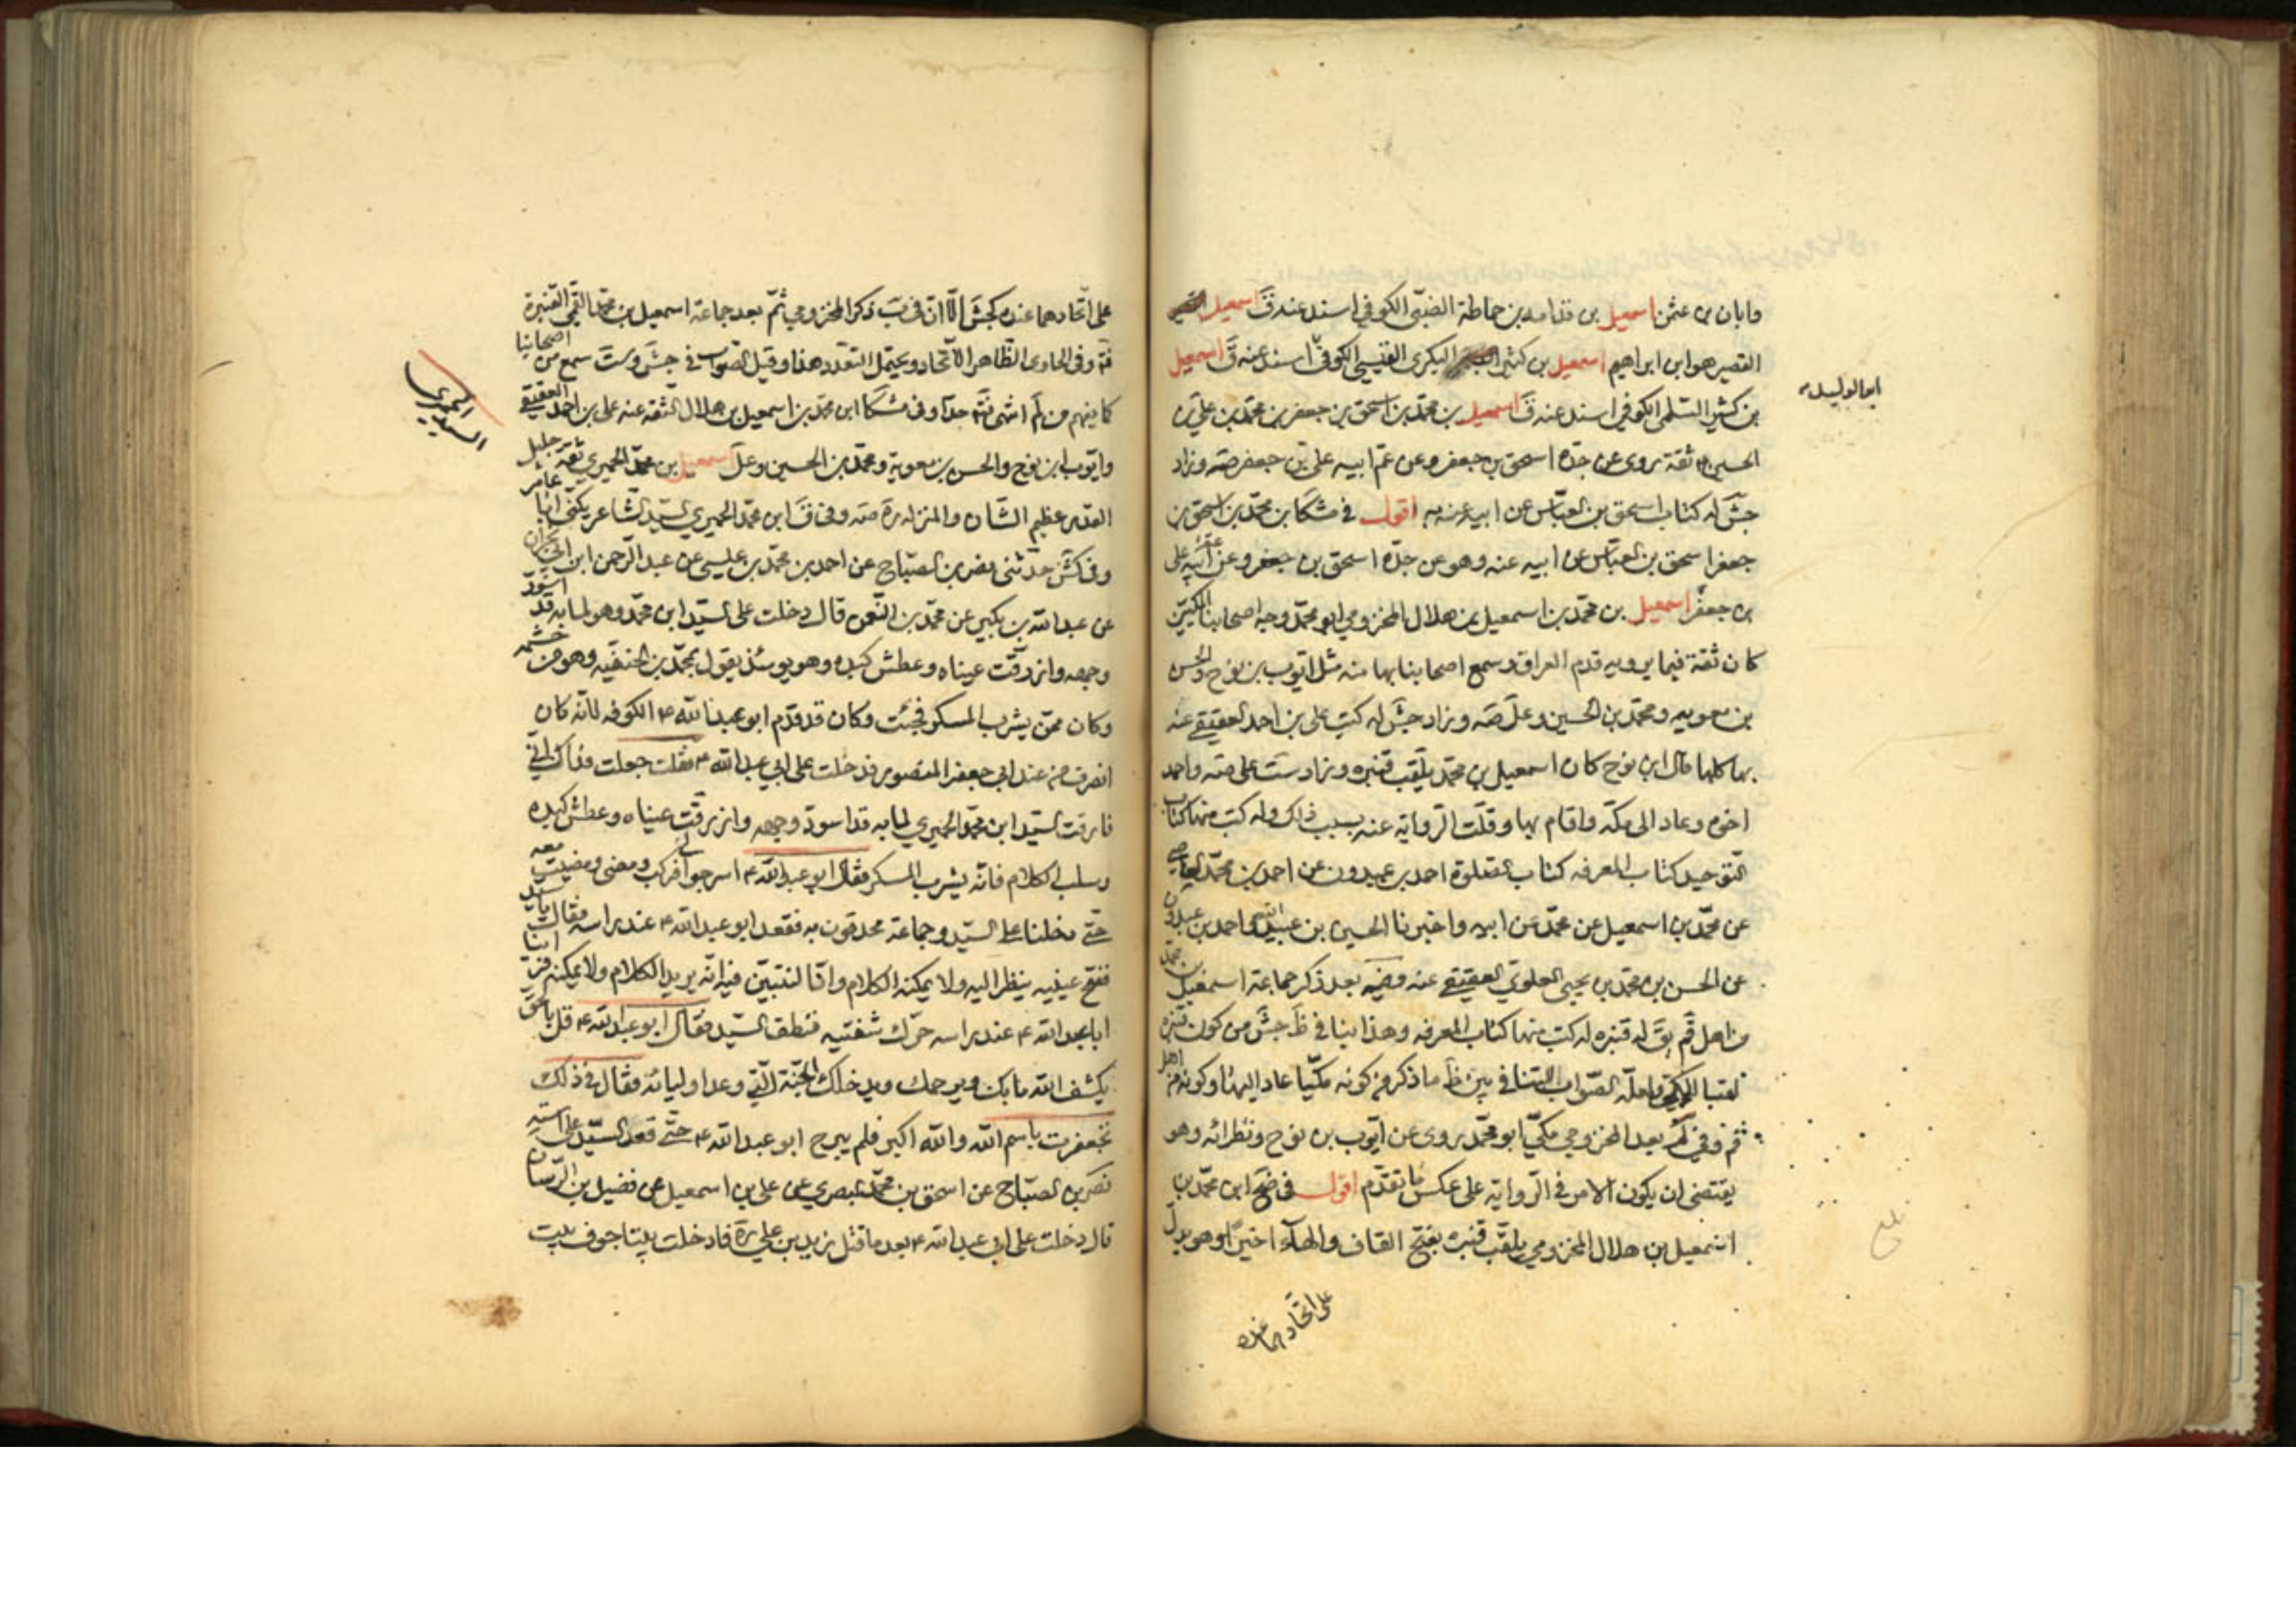 وابان بن عثمن اسمعيل بن قدامه بن حماطة الضبّى الكوفى اسند عنه ق اسمعيل
القصير هو ابن ابراهيم اسمعيل بن كثير البكرى القيسى الكوفىّ اسند عنه ق اسمعيل
ابو الوليد
بن كثير السلمى الكوفى اسند عنه ق اسمعيل بن محمّد بن اسحق بن جعفر بن محمّد بن على بن
الحسين ثقة روى عن جدّه اسحق بن جعفر وعن عمّ ابيه على بن جعفر صه وزاد
جش له كتاب اسحق بن العبّاس عن ابيه عنه به اقول فى مشكا بن محمّد بن اسحق بن
جعفر اسحق بن العبّاس عن ابيه عنه وهو عن جدّه اسحق بن جعفر وعن عمّ ابيه على
بن جعفر اسمعيل بن محمّد بن اسمعيل بن هلال المخزومى ابو محمّد وجه اصحابنا المكيّين
كان ثقة فيما يرويه قدم العراق وسمع اصحابنا بها منه مثل ايّوب بن نوح والحسن
بن معويه ومحمّد بن الحسين وعلّ صه وزاد جش له كتب على بن احمد العقيقى عنه
بها كلها قال ابن نوح كان اسمعيل بن محمّد يلقّب قنبره وزاد ست على صه واحمد
اخوه وعاد الى مكّه واقام بها وقلّت الرّوايه عنه بسبب ذلك وله كتب منها كتاب
التّوحيد كتاب المعرفه كتاب الصّلوة احمد بن عبدون عن احمد بن محمّد العاصمى
عن محمّد بن اسمعيل عن محمّد عن ابيه واخبرنا الحسين بن عبيد الله واحمد بن عبدون
عن الحسن بن محمّد بن يحيى العلوى العقيقى عنه وفيه بعد ذكر جماعة اسمعيل بن محمّد
من اهل قم يق له قنبره له كتب منها كتاب المعرفه وهذا ينافى ظ جش من كون قنبره
لقبا للمكى ولعلّه الصّواب التنافى بين ظ ما ذكر من كونه مكّيا عاد اليها وكونه من اهل
قم وفى لم بعد المخزومى مكّى ابو محمّد روى عن ايّوب بن نوح ونظرائه وهو
يقتضى ان يكون الامر فى الرّوايه على عكس ما تقدّم اقول فى ضح ابن محمّد بن
اسمعيل بن هلال المخزومى يلقّب قنبره بفتح القاف والهاء اخيرا وهو يدلّ
على اتّحادهما عنده
على اتّحادهما عنده كجش الّا انّ فى ب ذكر المخزومى ثمّ بعد جماعة اسمعيل بن محمّد القمى القنبرة
وفى الحاوى الظّاهر الاتّحاد ويحتمل التعدّد هذا وقيل الصّواب فى جش وست سمع من اصحابنا
كما يفهم من لم انتهى فتدبّر جدّا وفى مشكا ابن محمّد بن اسمعيل بن هلال الثقه عنه على بن احمد العقيقى
وايّوب ابن نوح والحسن بن معوية ومحمّد بن الحسين وعلّ اسمعيل بن محمّد الحميرى ثقه جليل
السيد الحميرى
القدر عظيم الشّان والمنزله ره صه وفى ق ابن محمّد الحميرى السيّد الشاعر يكنّى ابا عامر
وفى كش حدّثنى نصر بن الصبّاح عن احمد بن محمّد بن عيسى عن عبد الرّحمن ابن ابى نجران
عن عبد الله بن بكير عن محمّد بن النّعمن قال دخلت على السيّد ابن محمّد وهو لما به قد اسودّ
وجهه وازرقّت عيناه وعطش كبده وهو يومئذ يقول بمحمّد بن الحنفيّه وهو من حشمه
وكان ممّن يشرب المسكر فجئت وكان قد قدم ابو عبد الله ع الكوفه لانّه كان
انصرف من عند ابى جعفر المنصور فدخلت على ابى عبد الله ع فقلت جعلت فداك انّى
فارقت السيّد ابن محمّد الحميرى لما به قد اسودّ وجهه وازرقّت عيناه وعطش كبده
وسلب الكلام فانّه يشرب المسكر فقال ابو عبد الله ع اسرجوا لى فركب ومضى ومضيت معه
حتّى دخلنا على السيّد وجماعة محدقون به فقعد ابو عبد الله ع عند راسه فقال يا سيّد
ففتح عينيه ينظر اليه ولا يمكنه الكلام وانّا لنتبيّن فيه انّه يريد الكلام ولا يمكنه فراينا
ابا عبد الله ع عند راسه حرّك شفتيه فنطق السيّد فقال ابو عبد الله ع قل بالحقّ
يكشف الله ما بك ويرحمك ويدخلك الجنّة الّتى وعد اوليائه فقال فى ذلك
تجعفرت باسم الله والله اكبر فلم يبرح ابو عبد الله ع حتّى قعد السيّد على استه
نصر بن الصبّاح عن اسحق بن محمّد البصرى عن على بن اسمعيل عن فضيل بن الرّسان
قال دخلت على ابى عبد الله ع بعد ما قتل زيد بن على ره فادخلت بيتا جوف بيت